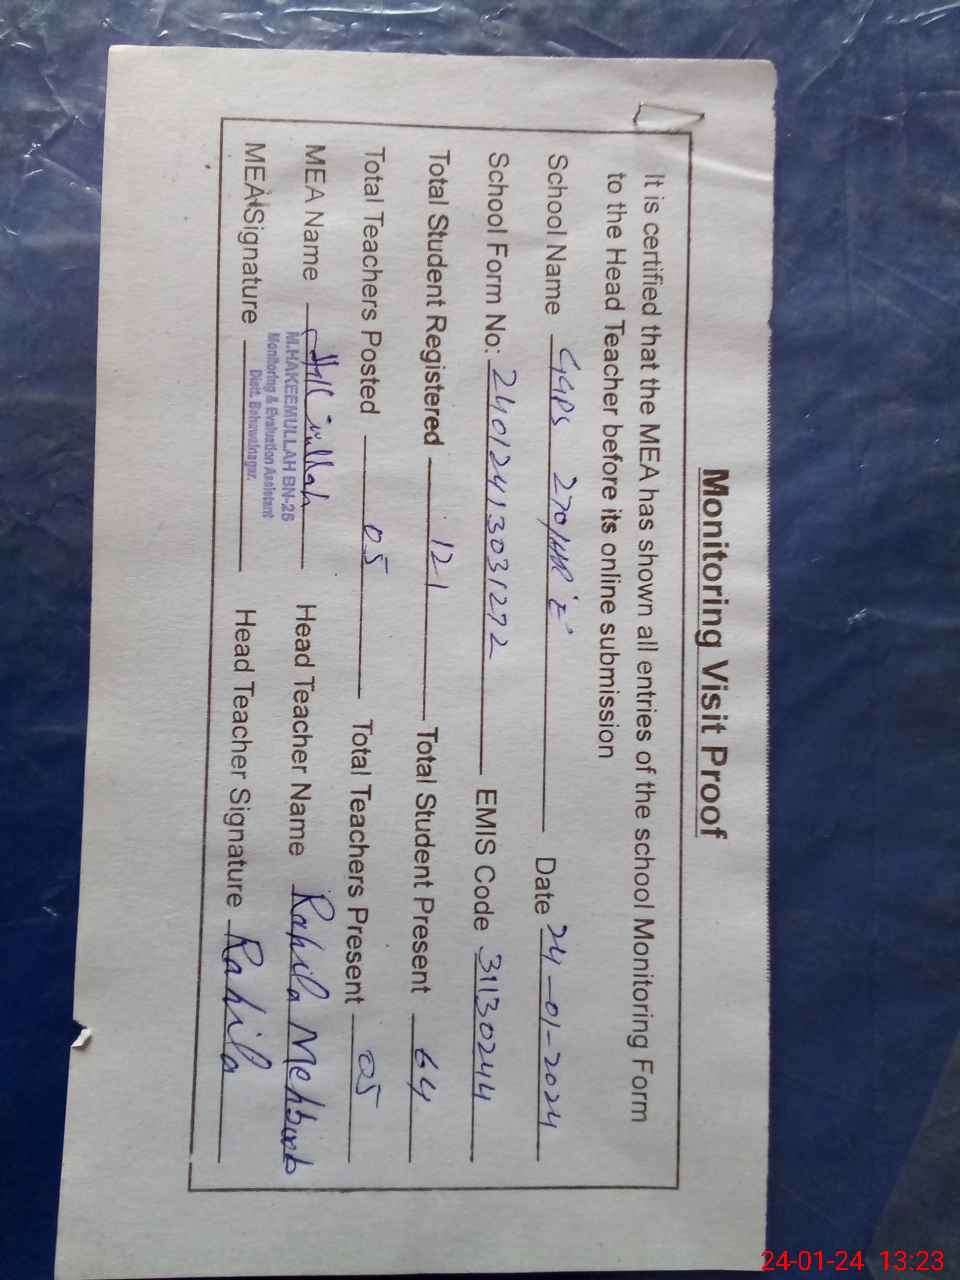 Monitoring Visit Proof
It is certified that the MEA has shown all entries of the school Monitoring Form
to the Head Teacher before its online submission
School Name GGPS 270/HR 'E' Date 24-01-2024
School Form No: 24012413031272 EMIS Code 31130244
Total Student Registered 121 Total Student Present 64
Total Teachers Posted 05 Total Teachers Present 05
MEA Name Head Teacher Name Rahila Mehboob
M.HAKEEMULLAH BN-25
Monitoring & Evaluation Assistant
Distt. Bahawalnagar.
MEA Signature Head Teacher Signature Rahila
24-01-24 13:23